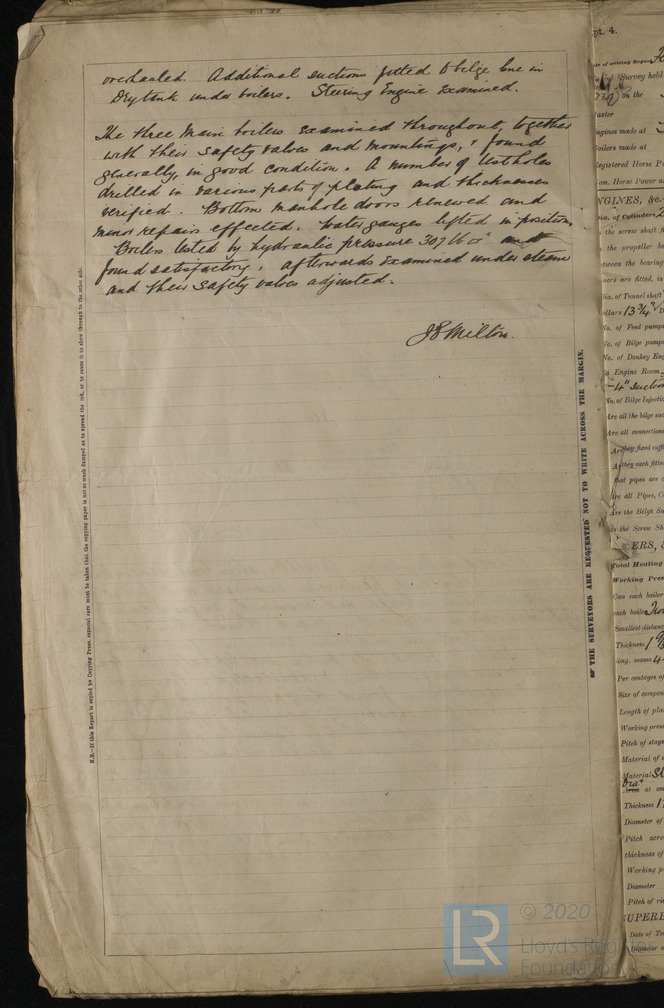 overhauled. Additional suctions fitted to bilge line in
Dry tank under boilers. Steering Engine Examined.
The three Main boilers examined throughout, together
with their safety valves and mountings, & found
generally, in good condition. A number of test holes
drilled in various parts of plating and thicknesses
verified. Bottom manhole doors renewed and
minor repairs effected. Water gauges lifted in position,
Boilers tested by hydraulic pressure 307 lb □" and
found satisfactory, afterwards examined under steam
and their safety valves adjusted.
J.T. Milton.
N.B.—If this Report is copied by Copying Press, especial care must be taken that the copying paper is not so much damped as to spread the ink, or to cause it to show through to the other side.
THE SURVEYORS ARE REQUESTED NOT TO WRITE ACROSS THE MARGIN.
pt. 4.
Survey held
on the
Master
Engines made at
Boilers made at
Registered Horse P
om. Horse Power a
NGINES, &c.
Dia. of Cylinders
the screw shaft
the propeller
tween the bearing
ners are fitted, is
Dia. of Tunnel shaft
ollars 13 3/4"
No. of Feed pumps
No. of Bilge pumps
No. of Donkey Eng
Engine Room
-4" suction
No. of Bilge Injectio
Are all the bilge suc
Are all connections
Are they fixed suffi
Are they each fitted
hat pipes are c
Are all Pipes, C
Are the Bilge Su
Is the Screw Sh
ERS, &
Total Heating
Working Pres
Can each boiler
each boiler
Smallest distanc
Thickness
long. seams 4
Per centages of
Size of compen
Length of pla
Working press
Pitch of stays
Material of s
Material St
Dia"
at sm
Thickness
Diameter of
Pitch acro
thickness of
Working p
Diameter
Pitch of ri
SUPERH
Date of Te
Diameter o
LR © 2020
Lloyd's Register
Foundation